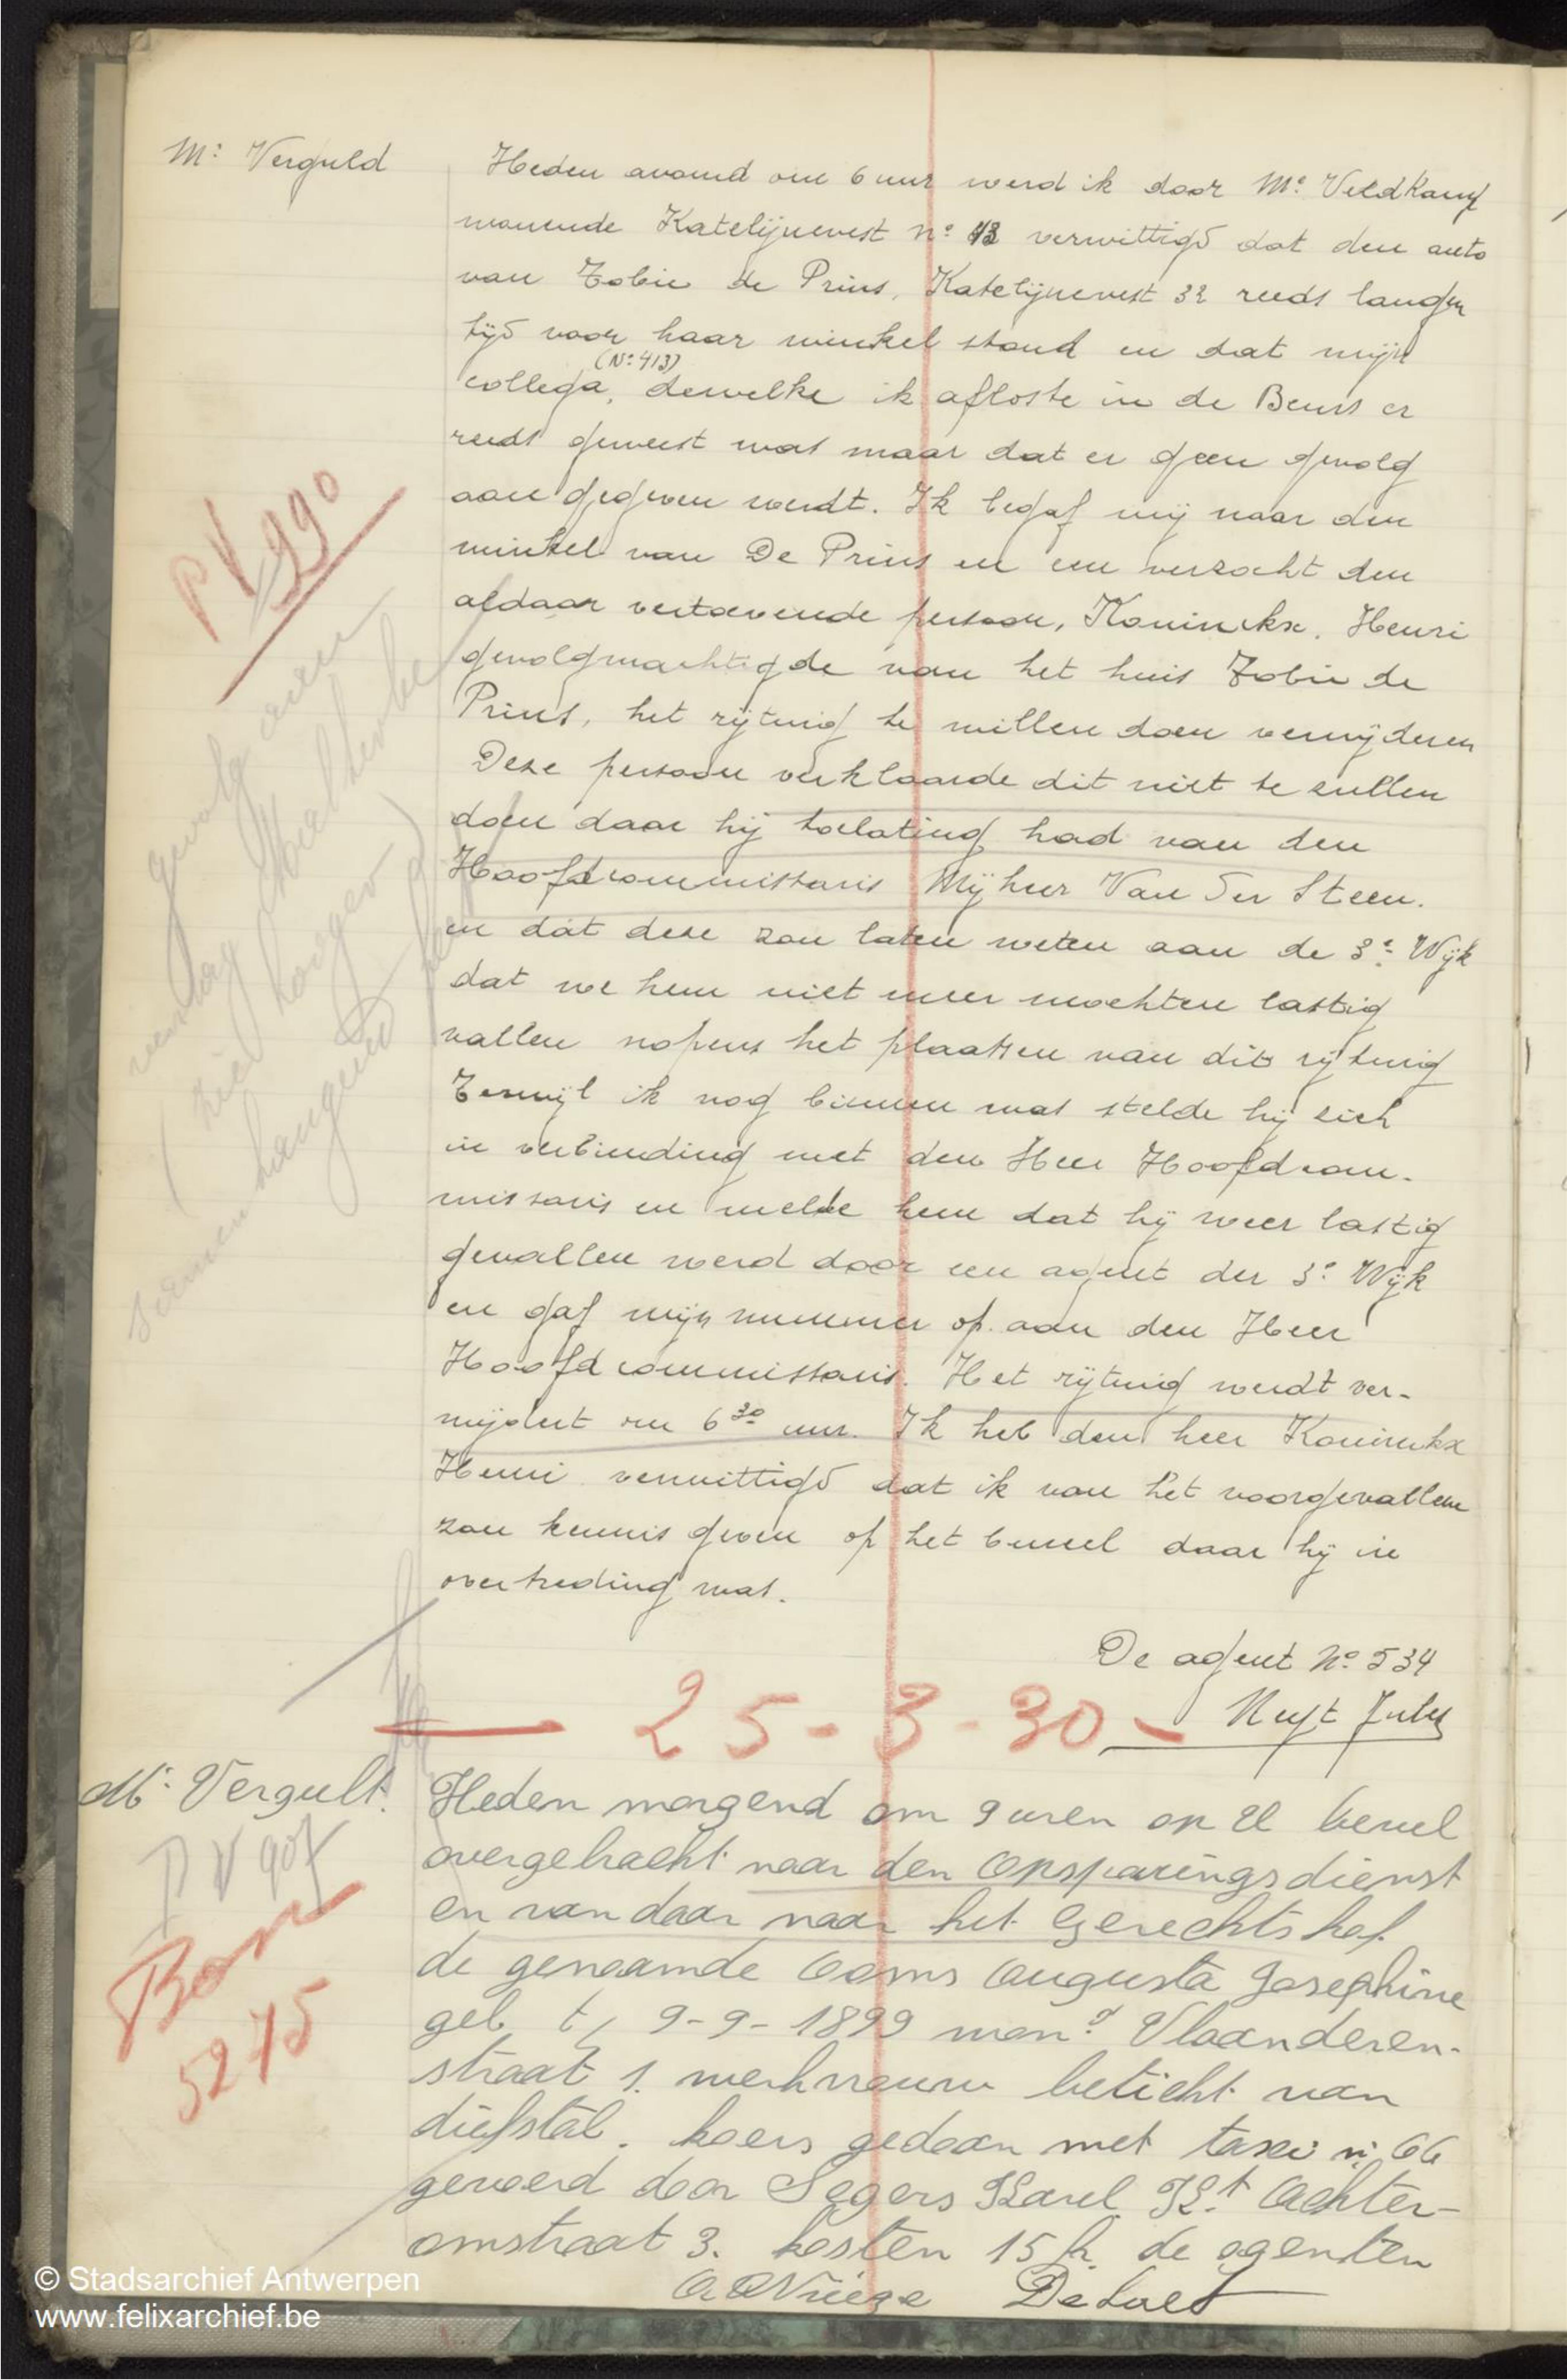 Mr Verguld
Heden avond om 6 uur werd ik door Me Veldkamp
wonende Katelijnevest no 43 verwittigd dat den auto
van Tobie de Prins, Katelijnevest 32 reeds langen
tijd voor haar winkel stond en dat mijn
(No 413)
collega, dewelke ik afloste in de Beurs er
reeds geweest was maar dat er geen gevolg
aan gegeven werdt. Ik begaf mij naar den
winkel van De Prins en en verzocht den
aldaar vertoevende persoon, Koninckx, Henri
gevolgmachtigde van het huis Tobie de
Prins, het rijtuig te willen doen verwijderen
Deze persoon verklaarde dit niet te zullen
doen daar hij toelating had van den
Hoofdcommissaris Mijheer Van der Steen.
en dat deze zou laten weten aan de 3e Wijk
dat we hem niet meer mochten lastig
vallen nopens het plaatsen van dit rijtuig
Terwijl ik nog binnen was stelde hij zich
in verbinding met den Heer Hoofdcom-
missaris en melde hem dat hij weer lastig
gevallen werd door een agent der 3e Wijk
en gaf mijn nummer op aan den Heer
Hoofdcommissaris. Het rijtuig werdt ver-
wijdert om 6 30 uur. Ik heb den heer Koninckx
Henri verwittigd dat ik van het voorgevallene
zou kennis geven op het bureel daar hij in
overtreding was.
PV 990
gevolg aan
verslag
(zie hooger)
De agent No 534
Nuyt Jules
25-3-30
Mr Vergult.
PV 907
Bon
5275
Heden morgend om 9 uren op U bevel
overgebracht naar den Opsparingsdienst
en van daar naar het Gerechtshof
de genaamde Ooms Augusta Josephine
geb t/ 9-9-1899 won.d Vlaanderen-
straat 1. werkvrouw beticht van
diefstal. koers gedaan met taxi n: 66
gevoerd door Segers Karel Kt Achter-
omstraat 3. kosten 15 fr. de agenten
© Stadsarchief Antwerpen
www.felixarchief.be